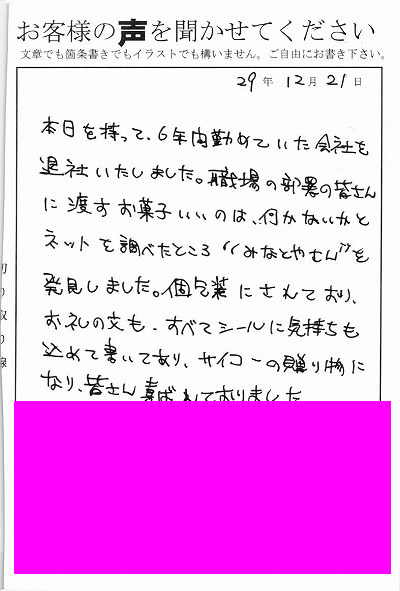 お客様の声を聞かせてください
文章でも箇条書きでもイラストでも構いません。ご自由にお書き下さい。
29年 12月 21日
本日を持って、6年間勤めていた会社を
退社いたしました。職場の部署の皆さん
に渡すお菓子いいのは、何かないかと
ネットを調べたところ"みなとやさん"を
発見しました。個包装にされており、
お礼の文も、すべてシールに気持ちも
込めて書いてあり、サイコーの贈り物に
なり、皆さん喜ばれておりました
切り取り線